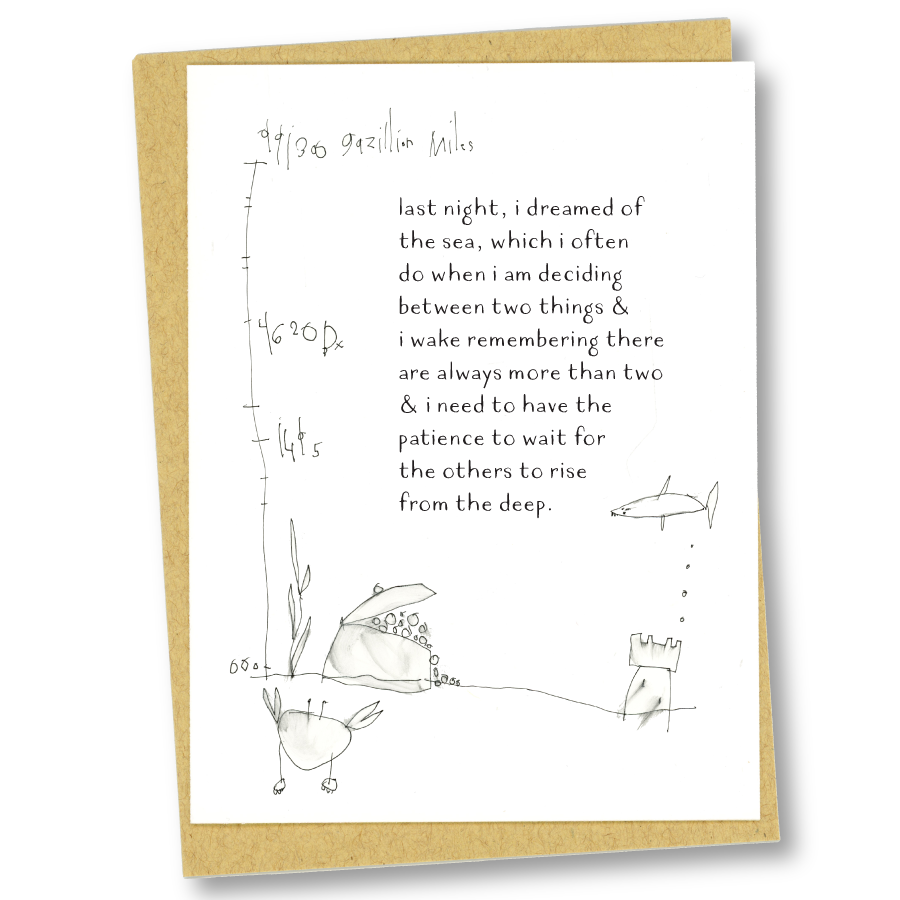 99130 gazillion miles
last night, i dreamed of
the sea, which i often
do when i am deciding
between two things &
i wake remembering there
are always more than two
& i need to have the
patience to wait for
the others to rise
from the deep.
4620